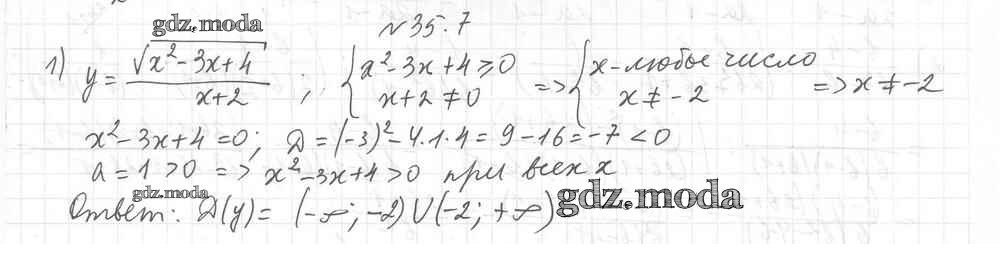 gdz.moda
№35.7
1) y = √(x² - 3x + 4) / (x + 2) ; { x² - 3x + 4 ≥ 0 x + 2 ≠ 0 => { x - любое число x ≠ -2 => x ≠ -2
x² - 3x + 4 = 0; Д = (-3)² - 4·1·4 = 9 - 16 = -7 < 0
a = 1 > 0 => x² - 3x + 4 > 0 при всех x
gdz.moda
Ответ: Д(y) = (-∞; -2) ∪ (-2; +∞)
gdz.moda